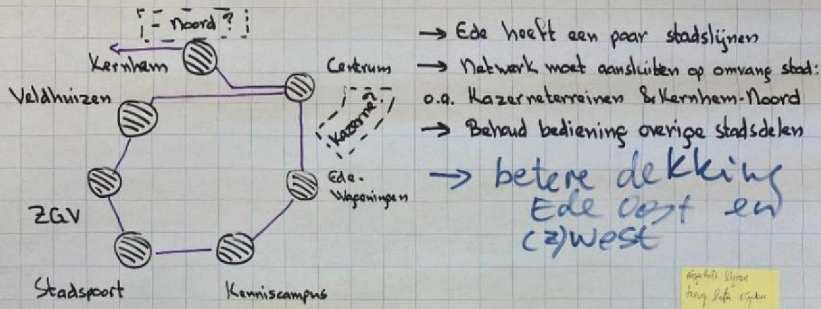 - Noord?
Kernhem
Centrum
Veldhuizen
Kazerne?
Ede-
Wageningen
ZGV
Stadspoort
Kenniscampus
→ Ede heeft een paar stadslijnen
→ Netwerk moet aansluiten op omvang stad:
o.a. Kazerneterreinen & Kernhem-Noord
→ Behoud bediening overige stadsdelen
→ betere dekking
Ede Oost en
(Z)West